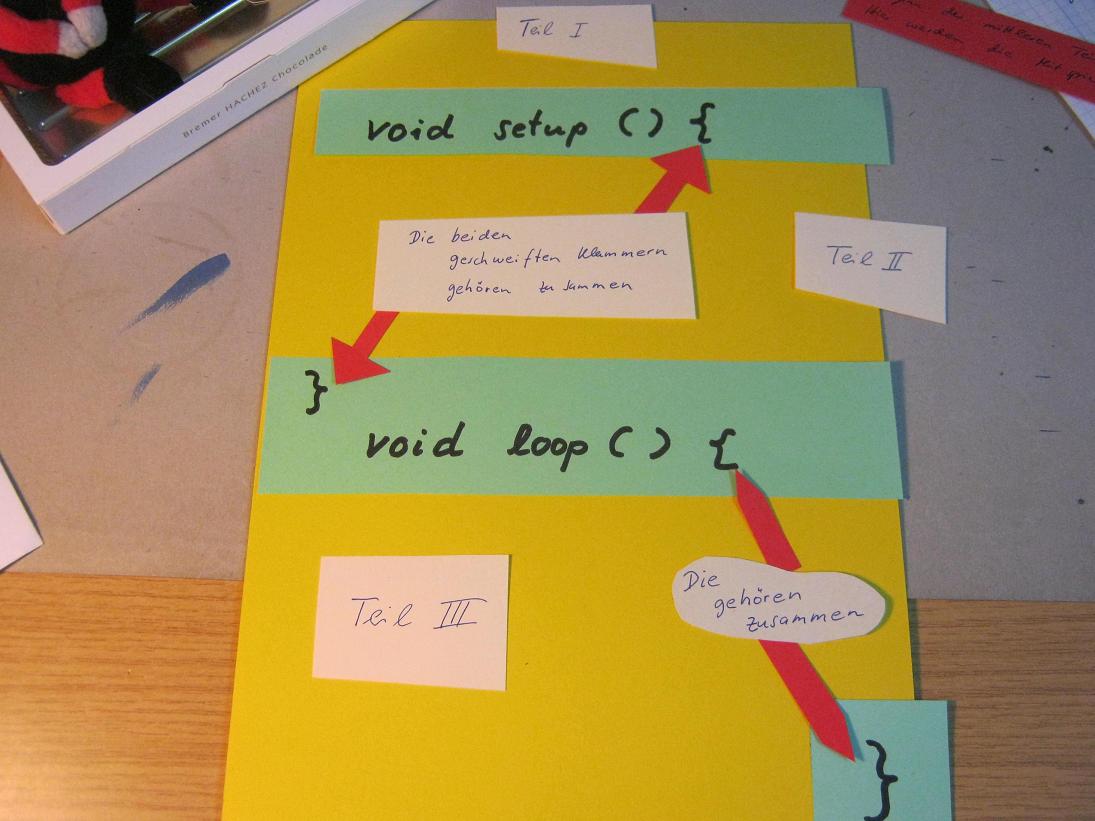 Teil I
des mittleren Te
Hier werden die
Bremer HACHEZ Chocolade
void setup () {
Die beiden
geschweiften Klammern
gehören zusammen
Teil II
}
void loop () {
Teil III
Die
gehören
zusammen
}